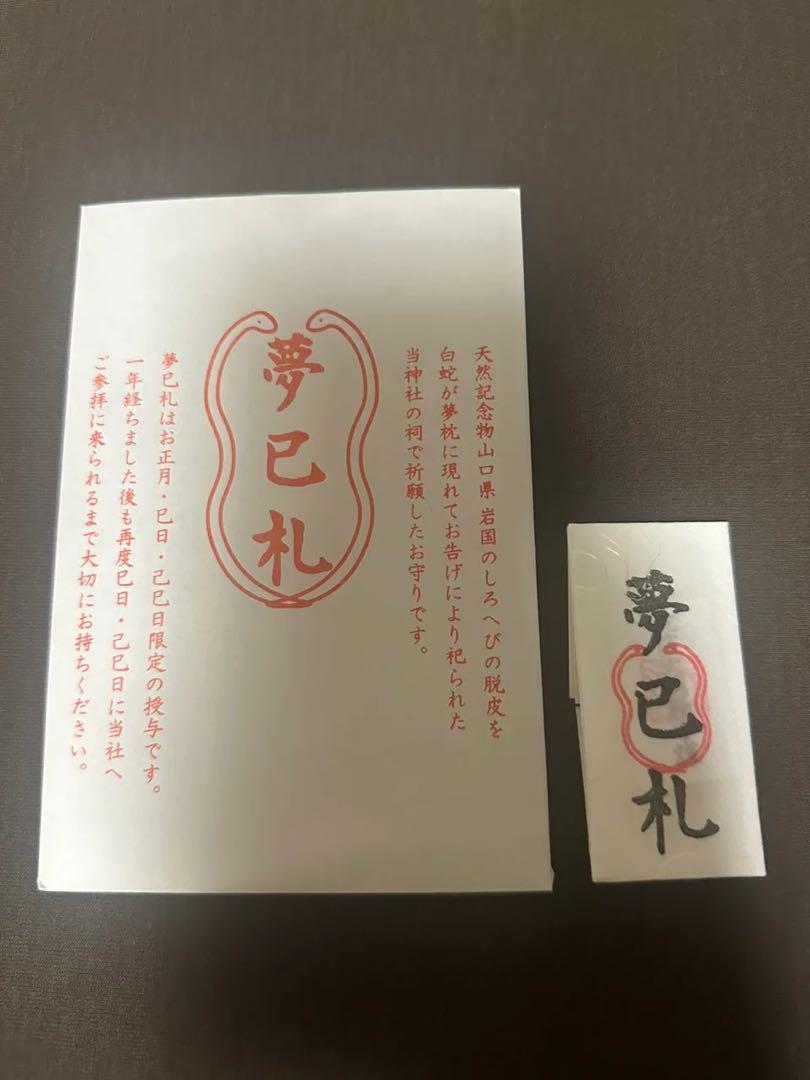 天然記念物山口県 岩国のしろへびの脱皮を
白蛇が夢枕に現れてお告げにより祀られた
当神社の祠で祈願したお守りです。
夢巳札
夢巳札はお正月・巳日・己巳日限定の授与です。
一年経ちました後も再度巳日・己巳日に当社へ
ご参拝に来られるまで大切にお持ちください。
夢巳札